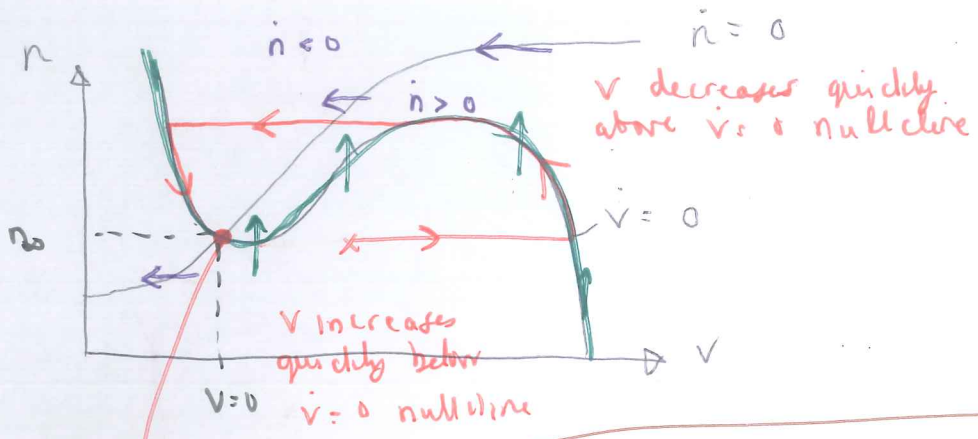 n
ṅ < 0
ṅ = 0
ṅ > 0
V decreases quickly
above v̇ = 0 nullcline
v̇ = 0
n₀
V increases
quickly below
v̇ = 0 nullcline
V
V=0